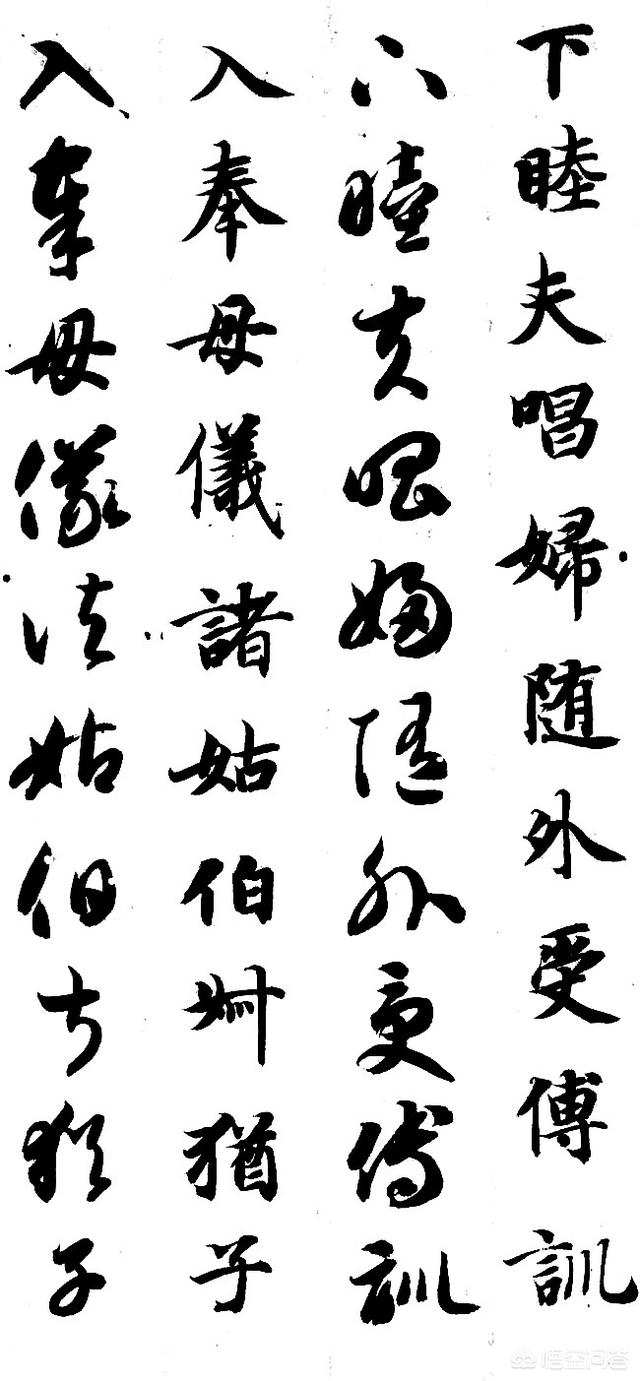 下睦夫唱婦随外受傅訓
下睦夫唱婦随外受傅訓
入奉母儀諸姑伯叔猶子
入奉母儀諸姑伯叔猶子
悟空问答